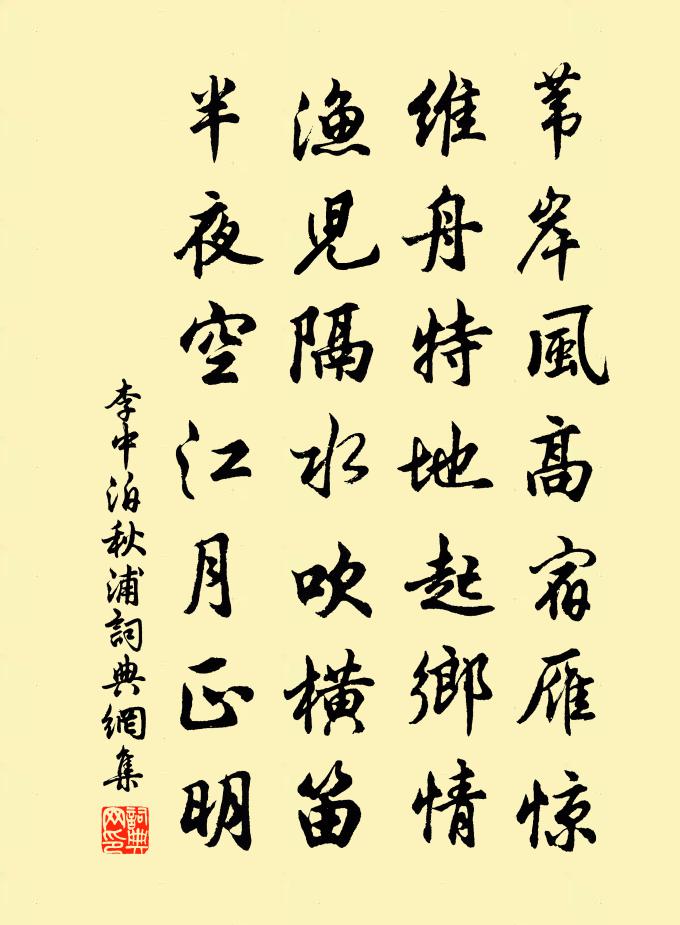 苇岸風高宿雁惊
維舟特地起鄉情
漁児隔水吹横笛
半夜空江月正明
李中泊秋浦詞典網集
詞典網印